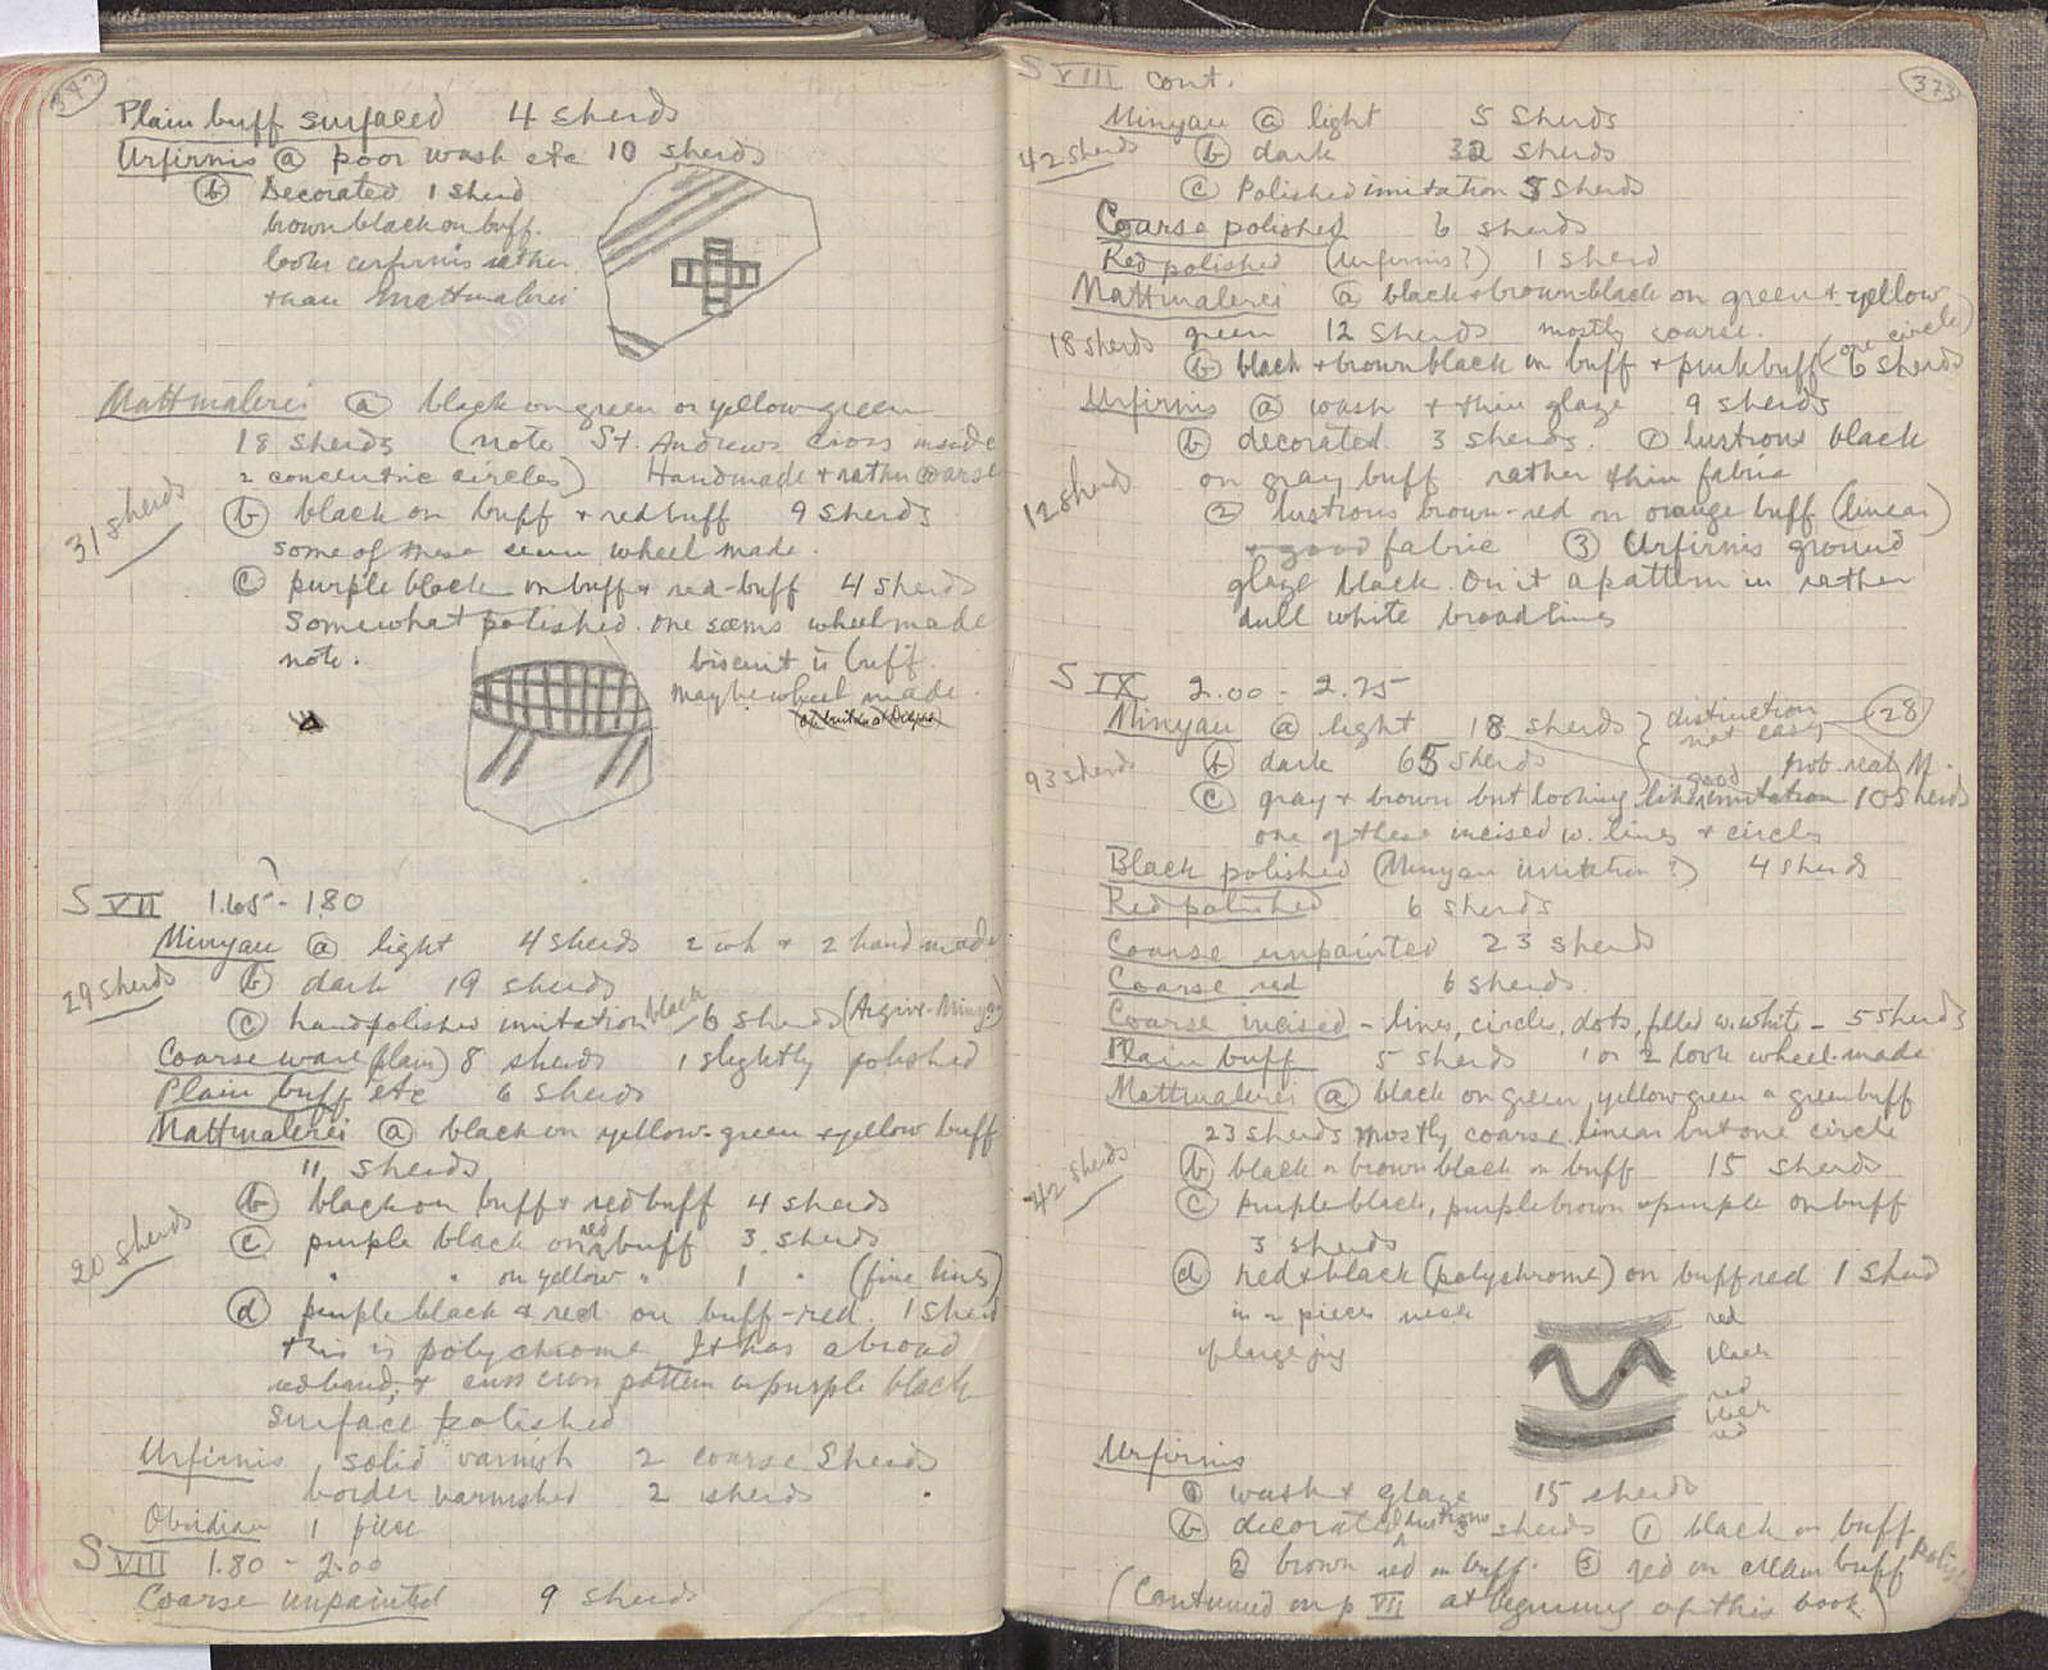 372
Plain buff surfaced 4 sherds
Urfirnis ⓐ poor wash etc 10 sherds
ⓑ Decorated 1 sherd
brown black on buff.
looks urfirnis rather
than Mattmalerei
Mattmalerei ⓐ black on green or yellow green
18 sherds (note St. Andrews cross inside
2 concentric circles) Handmade + rather coarse
31 sherds
ⓑ black on buff + red buff 9 sherds
some of these seem wheel made.
ⓒ purple black on buff + red-buff 4 sherds
Somewhat polished. One seems wheelmade
note. biscuit is buff.
May be wheel made.
S VII 1.65 - 1.80
Minyan ⓐ light 4 sherds 2 wh + 2 hand made
29 sherds
ⓑ dark 19 sherds
ⓒ hand polished imitation black 6 sherds (Argive-Miny?)
Coarse ware (plain) 8 sherds 1 slightly polished
Plain buff etc 6 sherds
Mattmalerei ⓐ black on yellow-green + yellow buff
11 sherds
20 sherds
ⓑ black on buff + red buff 4 sherds
ⓒ purple black on red buff 3 sherds
" " on yellow " 1 " (fine lines)
ⓓ purple black & red on buff-red. 1 sherd
this is polychrome It has a broad
red band, + criss cross pattern in purple black
surface polished
Urfirnis, solid varnish 2 coarse Sherds
border varnished 2 sherds
Obsidian 1 piece
S VIII 1.80 - 2.00
Coarse unpainted 9 sherds
S VIII cont. 373
Minyan ⓐ light 5 sherds
42 sherds
ⓑ dark 32 sherds
ⓒ Polished imitation 5 sherds
Coarse polished 6 sherds
Red polished (Urfirnis?) 1 sherd
Mattmalerei ⓐ black + brown-black on green + yellow
green 12 sherds mostly coarse.
18 sherds
ⓑ black + brown black on buff + pink buff (one circle) 6 sherds
Urfirnis ⓐ wash + thin glaze 9 sherds
ⓑ decorated. 3 sherds. ① lustrous black
on gray buff rather thin fabric
12 sherds
② lustrous brown-red on orange buff (linear)
+ good fabric ③ Urfirnis ground
glaze black. On it a pattern in rather
dull white broad lines
S IX 2.00 - 2.25
Minyan ⓐ light 18 sherds } distinction not easy 28
93 sherds
ⓑ dark 65 sherds prob. real M.
ⓒ gray + brown but looking like good imitation 10 sherds
one of these incised w. lines + circles
Black polished (Minyan imitation?) 4 sherds
Red polished 6 sherds
Coarse unpainted 23 sherds
Coarse red 6 sherds.
Coarse incised - lines, circles, dots, filled w. white - 5 sherds
Plain buff 5 sherds 1 or 2 look wheel-made
Mattmalerei ⓐ black on green, yellow green or green buff
23 sherds mostly coarse linear but one circle
42 sherds
ⓑ black or brown black on buff 15 sherds
ⓒ Purple black, purple brown + purple on buff
3 sherds
ⓓ red + black (polychrome) on buff red 1 sherd
in 2 pieces neck
of large jug
red
black
red
black
red
Urfirnis
ⓐ wash + glaze 15 sherds
ⓑ decorated lustrous 3 sherds ① black on buff
② brown red on buff. ③ red on cream buff
(Continued on p VII at beginning of this book)